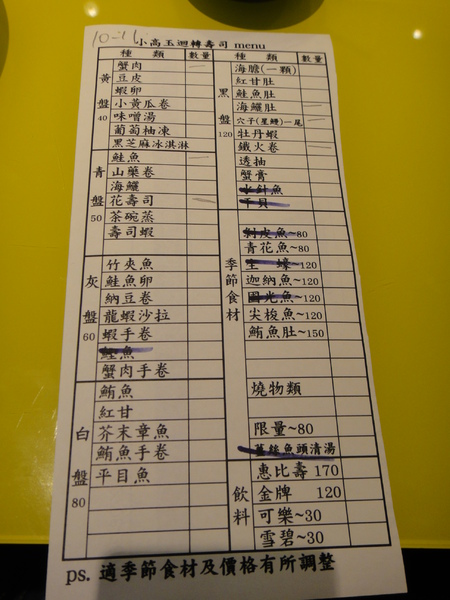 10-11
小高玉迴轉壽司 menu
種 類 數量
黃盤40
蟹肉 一
豆皮
蝦卵
小黃瓜卷
味噌湯
葡萄柚凍
黑芝麻冰淇淋
青盤50
鮭魚
山藥卷
海鱺
花壽司
茶碗蒸
壽司蝦
灰盤60
竹夾魚
鮭魚卵
納豆卷
龍蝦沙拉
蝦手卷
鰹魚
蟹肉手卷
白盤80
鮪魚
紅甘
芥末章魚
鮪魚手卷
平目魚
種 類 數量
黑盤120
海膽(一顆)
紅甘肚
鮭魚肚
海鱺肚
穴子(星鰻)一尾
牡丹蝦
鐵火卷
透抽
蟹膏
水針魚
干貝
季節食材
剝皮魚~80
青花魚~80
生 蠔~120
迦納魚~120
國光魚~120
尖梭魚~120
鮪魚肚~150
燒物類
限量~80
薑絲魚頭清湯
飲料
惠比壽 170
金牌 120
可樂~30
雪碧~30
ps. 適季節食材及價格有所調整